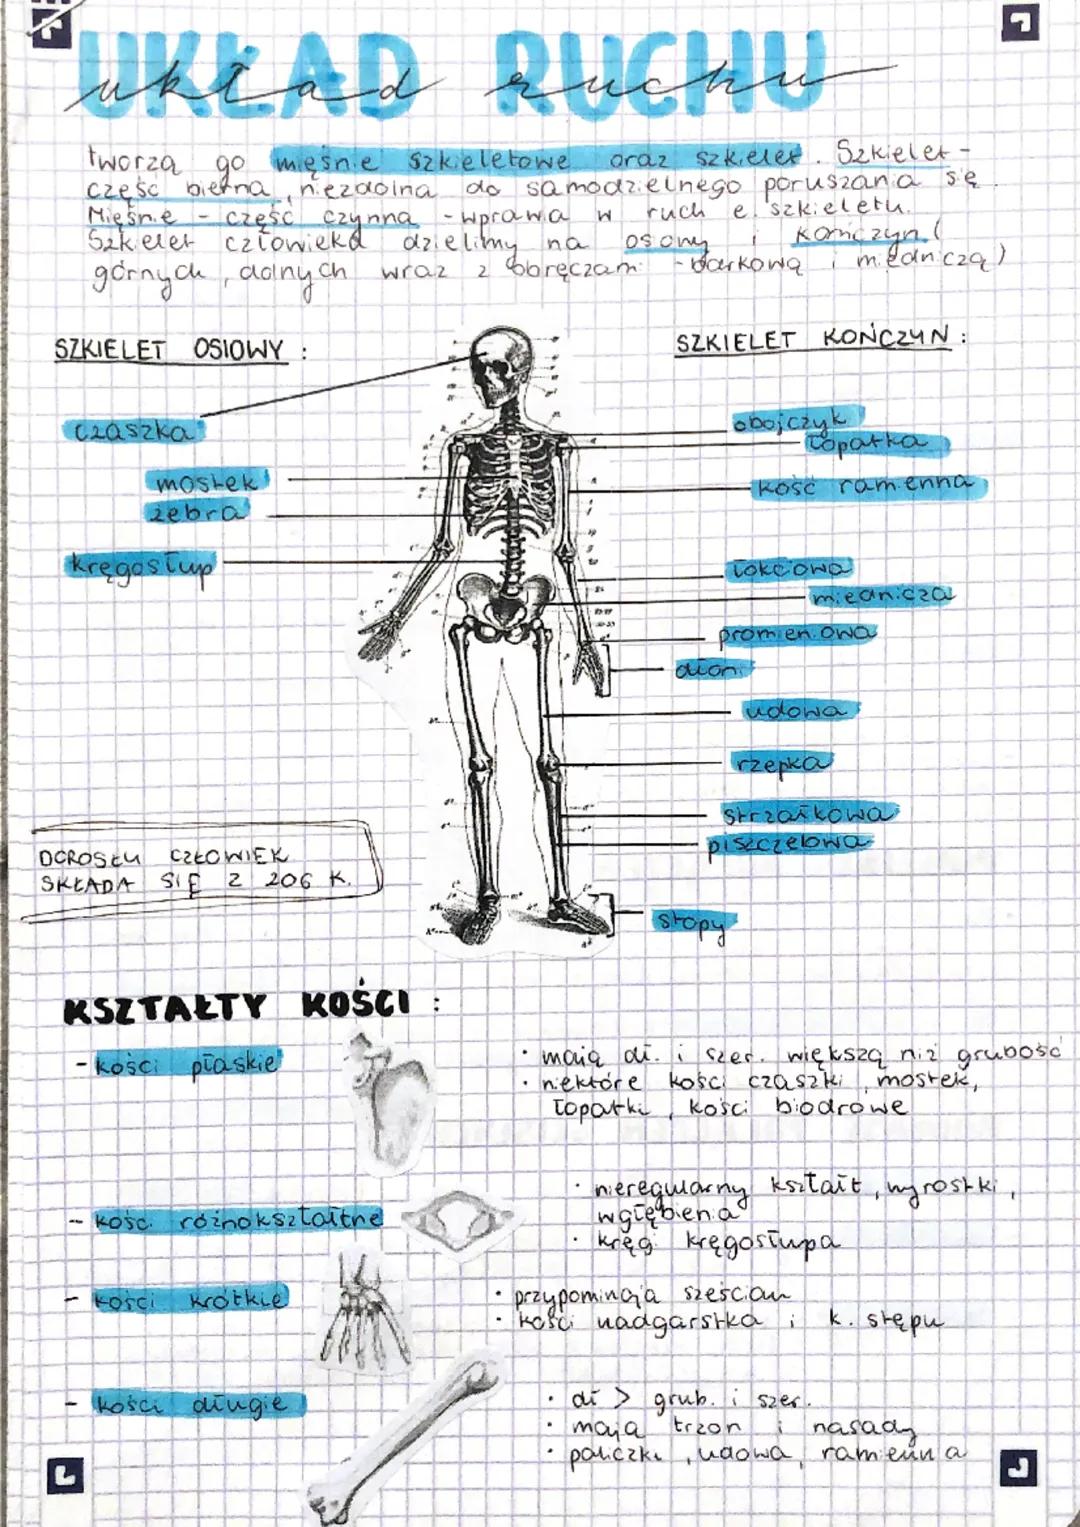 UKŁAD RUCHU
układ ruchu
tworzą go mięśnie szkieletowe oraz szkielet. Szkielet -
część bierna, niezdolna do samodzielnego poruszania się.
Mięśnie - część czynna - wprawia w ruch e. szkieletu.
Szkielet człowieka dzielimy na osiowy i kończyn (
górnych, dolnych wraz z obręczami - barkową i miedniczą)
SZKIELET OSIOWY :
SZKIELET KOŃCZYN :
czaszka
mostek
żebra
kręgosłup
obojczyk
łopatka
kość ramienna
łokciowa
miednicza
promieniowa
dłoni
udowa
rzepka
strzałkowa
piszczelowa
stopy
DOROSŁY CZŁOWIEK
SKŁADA SIĘ Z 206 K.
KSZTAŁTY KOŚCI :
- kości płaskie
• mają dł. i szer. większą niż grubość
• niektóre kości czaszki, mostek,
łopatki, kości biodrowe
- kości różnokształtne
• nieregularny kształt, wyrostki,
wgłębienia
• kręgi kręgosłupa
- kości krótkie
• przypominają sześcian
• kości nadgarstka i k. stępu
- kości długie
• dł > grub. i szer.
• mają trzon i nasady
• paliczki, udowa, ramienna